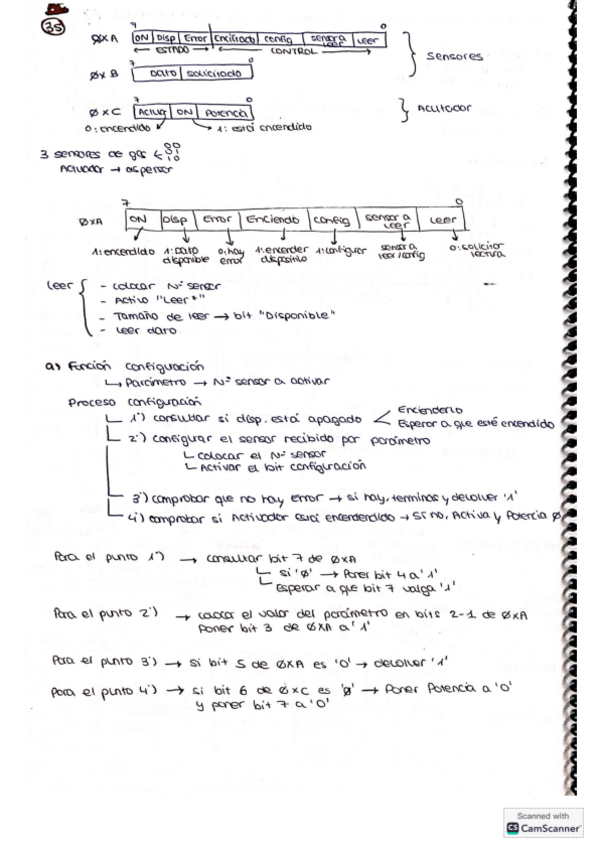 35
7 0
0xA ON Disp Error Encendido config sensor a leer leer
← ESTADO → ← CONTROL →
Sensores
7 0
0xB Dato solicitado
7 0
0xC Activa ON Potencia
Actuador
0: encendido 1: está encendido
3 sensores de gas 00 01 10
Actuador → aspersor
7 0
0xA ON Disp Error Enciendo config sensor a leer leer
1: encendido 1: Dato disponible 0: hay error 1: encender dispositivo 1: configurar sensor a leer/config 0: solicitar lectura
Leer - colocar Nº sensor
- Activo "Leer*"
- Tamaño de leer → bit "Disponible"
- Leer dato
a) Función configuración
↳ Parámetro → Nº sensor a activar
Proceso configuración
1º) consultar si disp. está apagado < Encenderlo
Esperar a que esté encendido
2º) configurar el sensor recibido por parámetro
↳ colocar el Nº sensor
↳ Activar el bit configuración
3º) comprobar que no hay error → si hay, terminas y devolver '1'
4º) comprobar si Activador está encendido → si no, Activa y Potencia 0
Para el punto 1º) → consultar bit 7 de 0xA
si '0' → Poner bit 4 a '1'
Esperar a que bit 7 valga '1'
Para el punto 2º) → colocar el valor del parámetro en bits 2-1 de 0xA
Poner bit 3 de 0xA a '1'
Para el punto 3º) → Si bit 5 de 0xA es '0' → devolver '1'
Para el punto 4º) → si bit 6 de 0xC es '0' → Poner Potencia a '0'
y poner bit 7 a '0'
Scanned with
CS CamScanner